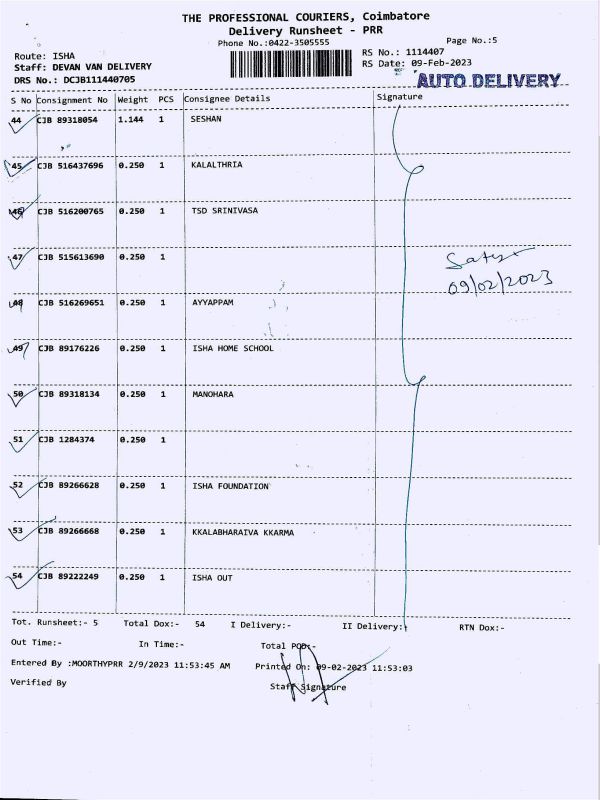 THE PROFESSIONAL COURIERS, Coimbatore
Delivery Runsheet - PRR
Phone No.:0422-3505555
Page No.:5
Route: ISHA
RS No.: 1114407
Staff: DEVAN VAN DELIVERY
RS Date: 09-Feb-2023
DRS No.: DCJB111440705
AUTO DELIVERY
S No Consignment No Weight PCS Consignee Details Signature
44 CJB 89318054 1.144 1 SESHAN
45 CJB 516437696 0.250 1 KALALTHRIA
46 CJB 516200765 0.250 1 TSD SRINIVASA
47 CJB 515613690 0.250 1
09/02/2023
48 CJB 516269651 0.250 1 AYYAPPAM
49 CJB 89176226 0.250 1 ISHA HOME SCHOOL
50 CJB 89318134 0.250 1 MANOHARA
51 CJB 1284374 0.250 1
52 CJB 89266628 0.250 1 ISHA FOUNDATION
53 CJB 89266668 0.250 1 KKALABHARAIVA KKARMA
54 CJB 89222249 0.250 1 ISHA OUT
Tot. Runsheet:- 5 Total Dox:- 54 I Delivery:- II Delivery:- RTN Dox:-
Out Time:- In Time:- Total POD:-
Entered By :MOORTHYPRR 2/9/2023 11:53:45 AM Printed On: 09-02-2023 11:53:03
Verified By Staff Signature